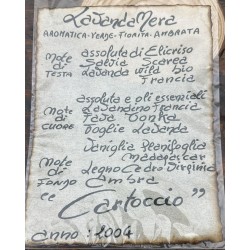 LavandaNera
AROMATICA-VERDE-FIORITA-AMBRATA
Note di TESTA
assoluta di Elicriso
Salvia Scarea
Lavanda wild bio
Francia
Note di CUORE
assoluta e oli essenziali
Lavandino Francia
Fava Tonka
Foglie Lavanda
Note di FONDO
Vaniglia Planifoglia
Madagascar
Legno Cedro Virginia
Ambra
"Cartoccio"
anno: 2004